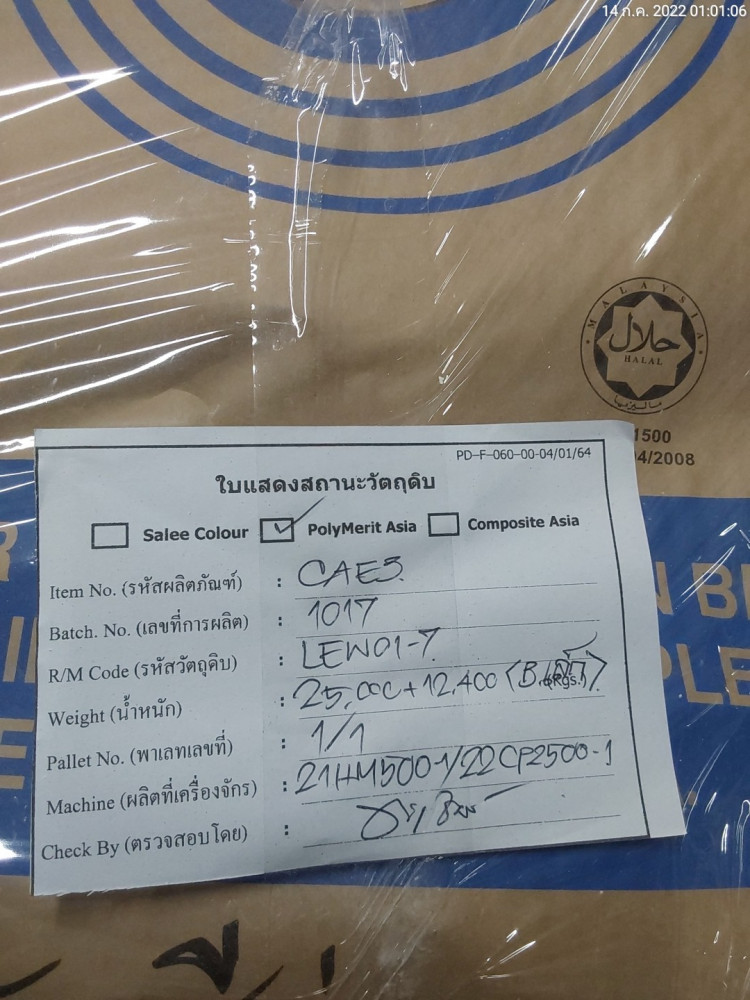 14 ก.ค. 2022 01:01:06
MALAYSIA
حلال
HALAL
ماليزيا
1500
4/2008
PD-F-060-00-04/01/64
ใบแสดงสถานะวัตถุดิบ
Salee Colour PolyMerit Asia Composite Asia
Item No. (รหัสผลิตภัณฑ์) : CAE3
Batch. No. (เลขที่การผลิต) : 1017
R/M Code (รหัสวัตถุดิบ) : LEW01-7
Weight (น้ำหนัก) : 25,000+12,400 (Kgs.)
Pallet No. (พาเลทเลขที่) : 1/1
Machine (ผลิตที่เครื่องจักร) : 21HM500-1/22CP2500-1
Check By (ตรวจสอบโดย) :